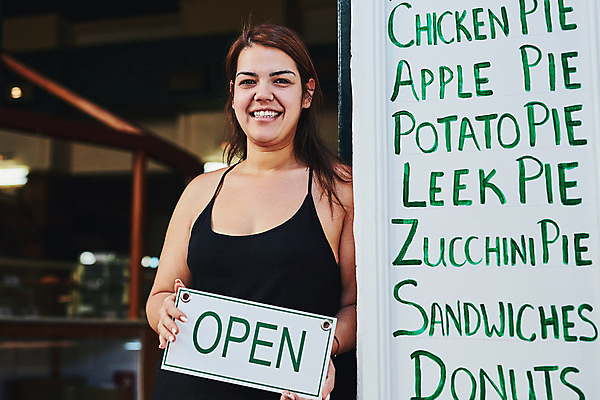 CHICKEN PIE
APPLE PIE
POTATO PIE
LEEK PIE
ZUCCHINI PIE
SANDWICHES
DONUTS
OPEN